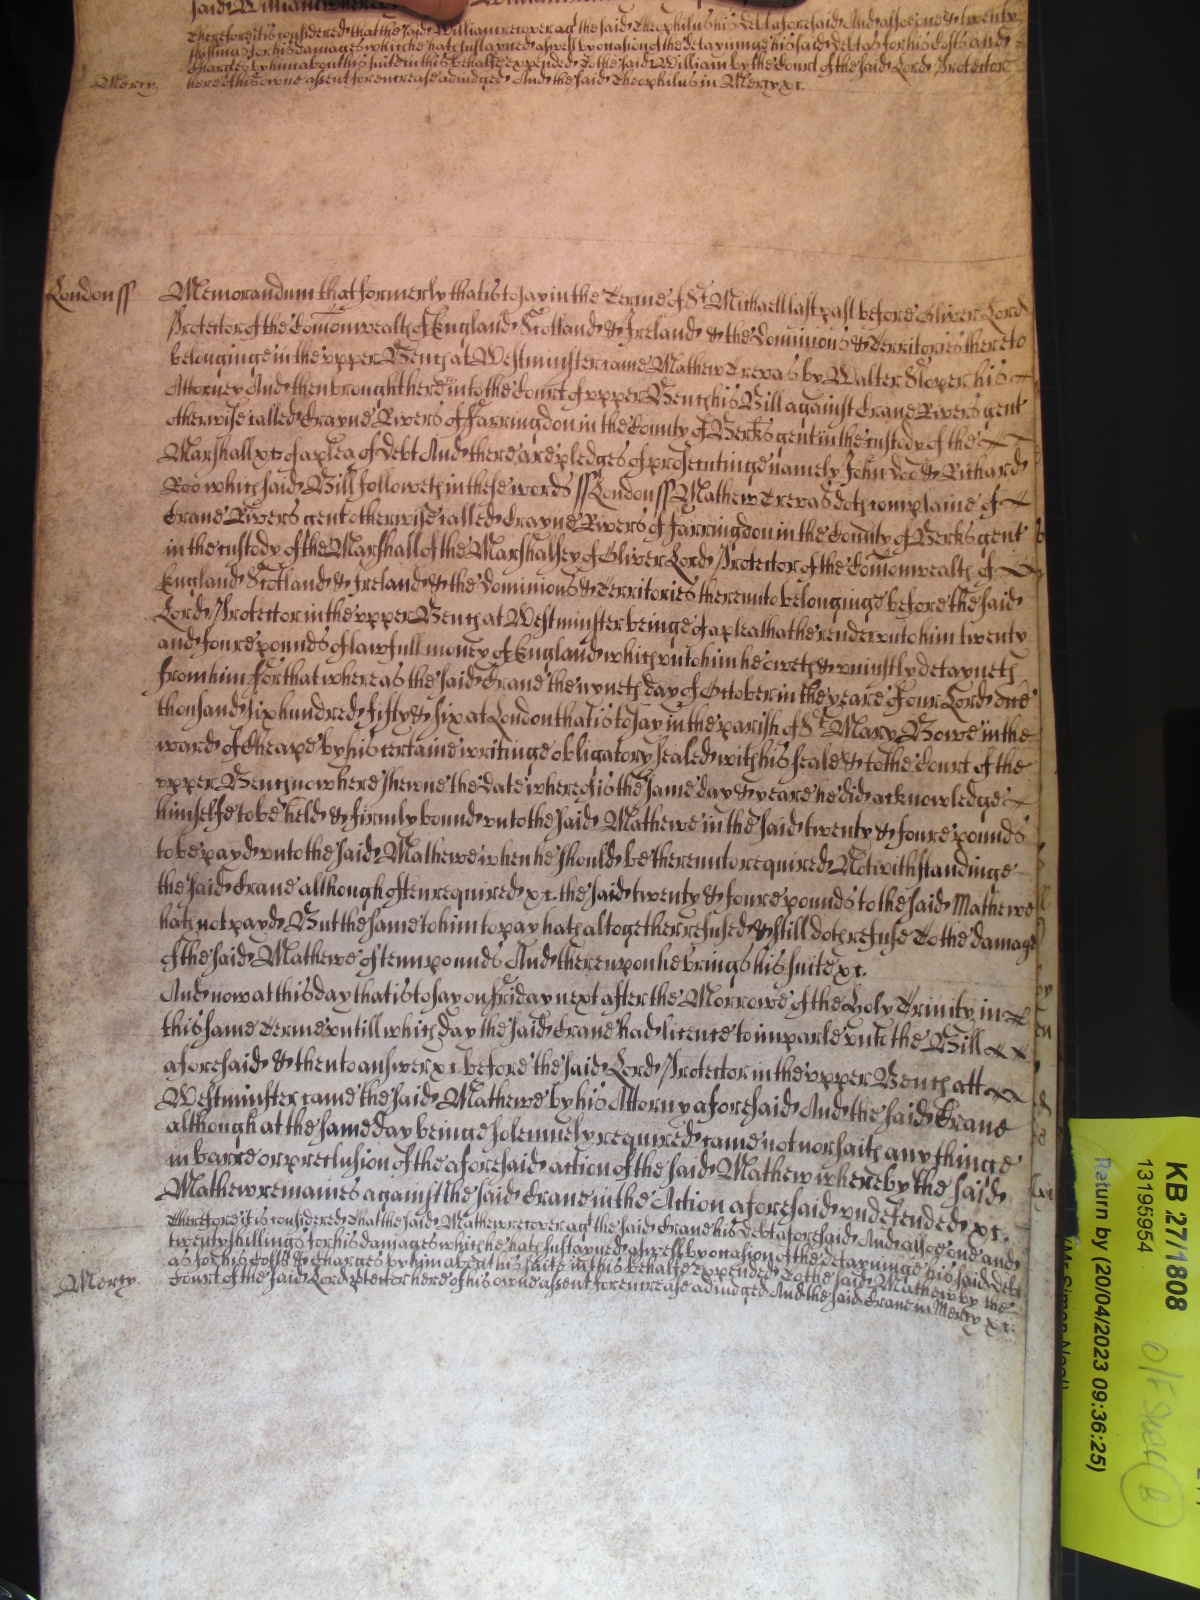 said William
Therefore it is considered that the said William recover agt the said Theophilus his Debt aforesaid And alsoe one & twenty
shillings for his damages which he hath sustayned aswell by occasion of the detayninge his said Debt as for his Costs and
Charges by him about his suite in this behalfe expended To the said William by the Court of the said Lord Protector
Mercy. here of his owne assent for encrease adiudged And the said Theophilus in Mercy &c.
London ss Memorandum that formerly that is to say in the Terme of St Michaell last past before Oliver Lord
Protector of the Comonwealth of England Scotland & Ireland & the Dominions & Territories thereto
belonginge in the vpper Bench at Westminster came Mathew Trevas by Walter Sloper his
Attorney And then brought here into the Court of vpper Bench his Bill against Crane Rivers gent
otherwise called Crayne Rivers of Farringdon in the County of Berks gent in the custody of the
Marshall &c of a plea of Debt And there are pledges of prosecutinge namely John Doo & Richard
Roo which said Bill followeth in these words ss London ss Mathew Trevas doth complaine of
Crane Rivers gent otherwise called Crayne Rivers of Farringdon in the County of Berks gent
in the custody of the Marshall of the Marshalsey of Oliver Lord Protector of the Comonwealth of
England Scotland & Ireland & the Dominions & Territories thereunto belonginge before the said
Lord Protector in the vpper Bench at Westminster beinge of a plea that he render vnto him twenty
and foure pounds of lawfull money of England which vnto him he oweth & vniustly detayneth
from him For that whereas the said Crane the nyneth day of October in the yeare of our Lord one
thousand six hundred fifty & six at London that is to say in the parish of St Mary Bowe in the
ward of Cheape by his certaine writinge obligatory sealed with his seale & to the Court of the
vpper Bench now here shewne the Date whereof is the same day & yeare he did acknowledge
himselfe to be held & firmly bound vnto the said Mathewe in the said twenty & foure pounds
to be payd vnto the said Mathewe when he should be thereunto required Notwithstandinge
the said Crane although often required &c. the said twenty & foure pounds to the said Mathewe
hath not payd But the same to him to pay hath altogether refused & still doth refuse To the damage
of the said Mathewe of tenn pounds And thereupon he brings his suite &c.
And now at this day that is to say on Friday next after the Morrowe of the Holy Trinity in
this same Terme vntill which day the said Crane had licence to imparle vnto the Bill
aforesaid & then to answer &c before the said Lord Protector in the vpper Bench att
Westminster came the said Mathewe by his Attorny aforesaid And the said Crane
although at the same day beinge solemnely required came not nor saith any thinge
in barre or preclusion of the aforesaid action of the said Mathew whereby the said
Mathew remaines against the said Crane in the Action aforesaid vndefended &c.
Therefore it is considered That the said Mathew recover agt the said Crane his debt aforesaid And alsoe one and
twenty shillings for his damages which he hath sustayned aswell by occasion of the detayninge his said debt
as for his Costs & Charges by him about his suite in this behalfe expended To the said Mathew by the
Mercy. Court of the said Lord Protector here of his owne assent for encrease adiudged And the said Crane in Mercy &c.
KB 27/1808
13195954
Return by (20/04/2023 09:36:25)